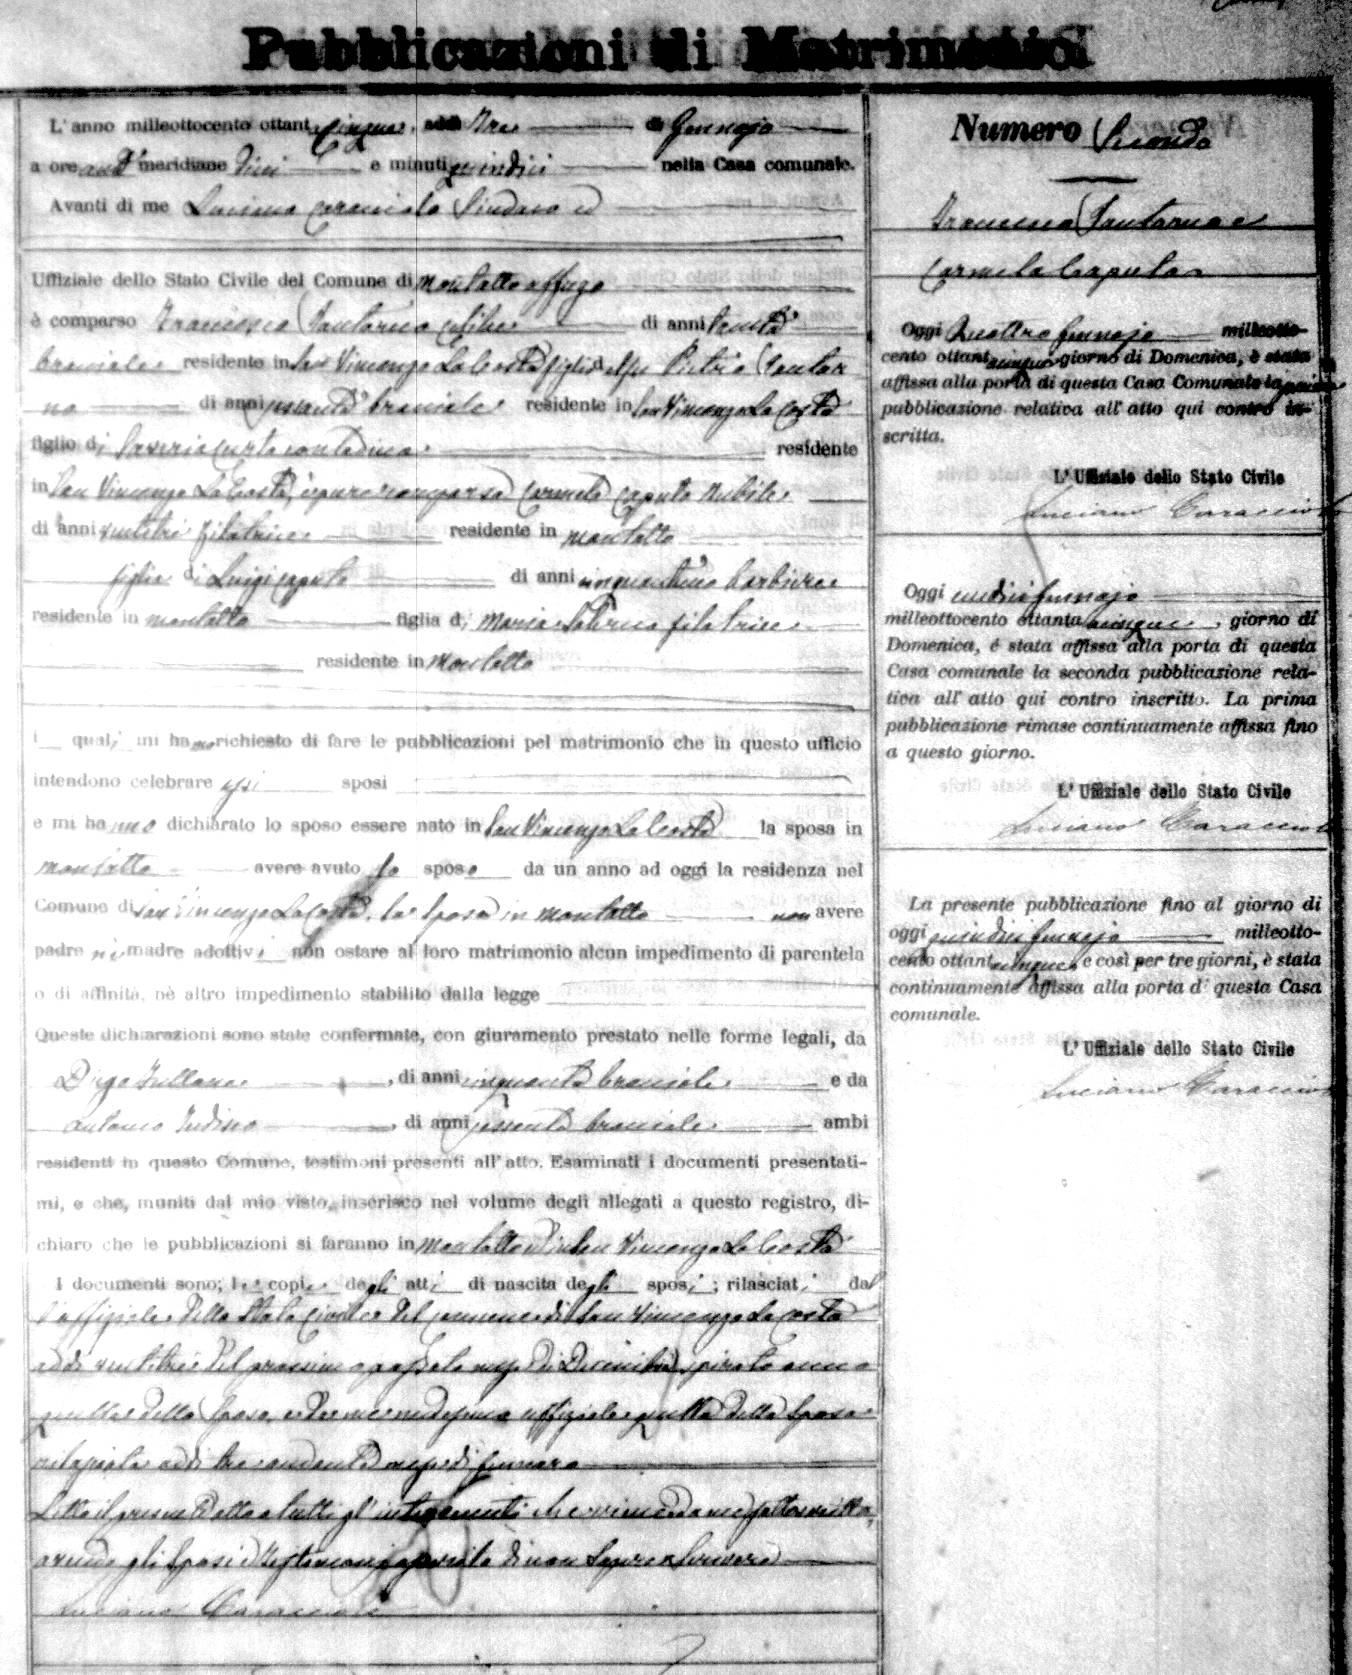 Pubblicazioni di Matrimonio
L'anno milleottocento ottantacinque, addì tre di Gennajo
a ore anti meridiane dieci e minuti quindici nella Casa comunale.
Avanti di me Luciano Caracciolo Sindaco ed
Uffiziale dello Stato Civile del Comune di Montalto Uffugo
è comparso Francesco Santorno celibe di anni trenta
bracciale residente in San Vincenzo La Costa figlio del fu Pietro Santor
no di anni sessanta bracciale residente in San Vincenzo La Costa
figlio di Saveria Curto contadina residente
in San Vincenzo La Costa, è pure comparsa Carmela Caputo nubile
di anni ventitre filatrice residente in Montalto
figlia di Luigi Caputo di anni cinquantuno barbiere
residente in Montalto figlia di Maria filatrice
residente in Montalto
i quali mi hanno richiesto di fare le pubblicazioni pel matrimonio che in questo ufficio
intendono celebrare essi sposi
e mi hanno dichiarato lo sposo essere nato in San Vincenzo La Costa la sposa in
Montalto avere avuto lo sposo da un anno ad oggi la residenza nel
Comune di San Vincenzo La Costa, la sposa in Montalto non avere
padre nè madre adottivi non ostare al loro matrimonio alcun impedimento di parentela
o di affinità, nè altro impedimento stabilito dalla legge
Queste dichiarazioni sono state confermate, con giuramento prestato nelle forme legali, da
di anni cinquanta bracciale e da
Antonio di anni sessanta bracciale ambi
residenti in questo Comune, testimoni presenti all'atto. Esaminati i documenti presentati-
mi, e che, muniti dal mio visto, inserisco nel volume degli allegati a questo registro, di-
chiaro che le pubblicazioni si faranno in Montalto ed in San Vincenzo La Costa
I documenti sono; le copie degli atti di nascita degli sposi; rilasciati dal
l'uffiziale dello Stato Civile del comune di San Vincenzo La Costa
addì ventitre del prossimo passato mese di Dicembre spirato anno
quella dello sposo, e da me medesimo uffiziale quella della sposa
rilasciata addì tre andante mese di Gennaro
Letto il presente atto a tutti gl'intervenuti che viene da me sottoscritto,
avendo gli sposi e testimoni asserito di non sapere scrivere
Luciano Caracciolo
Numero Secondo
Francesco Santorno e
Carmela Caputo
Oggi quattro Gennajo milleotto-
cento ottantacinque giorno di Domenica, è stata
affissa alla porta di questa Casa Comunale la prima
pubblicazione relativa all'atto qui contro in-
scritta.
L'Uffiziale dello Stato Civile
Luciano Caracciolo
Oggi undici Gennajo
milleottocento ottantacinque, giorno di
Domenica, è stata affissa alla porta di questa
Casa comunale la seconda pubblicazione rela-
tiva all'atto qui contro inscritto. La prima
pubblicazione rimase continuamente affissa fino
a questo giorno.
L'Uffiziale dello Stato Civile
Luciano Caracciolo
La presente pubblicazione fino al giorno di
oggi quindici Gennajo milleotto-
cento ottantacinque e così per tre giorni, è stata
continuamente affissa alla porta d' questa Casa
comunale.
L'Uffiziale dello Stato Civile
Luciano Caracciolo